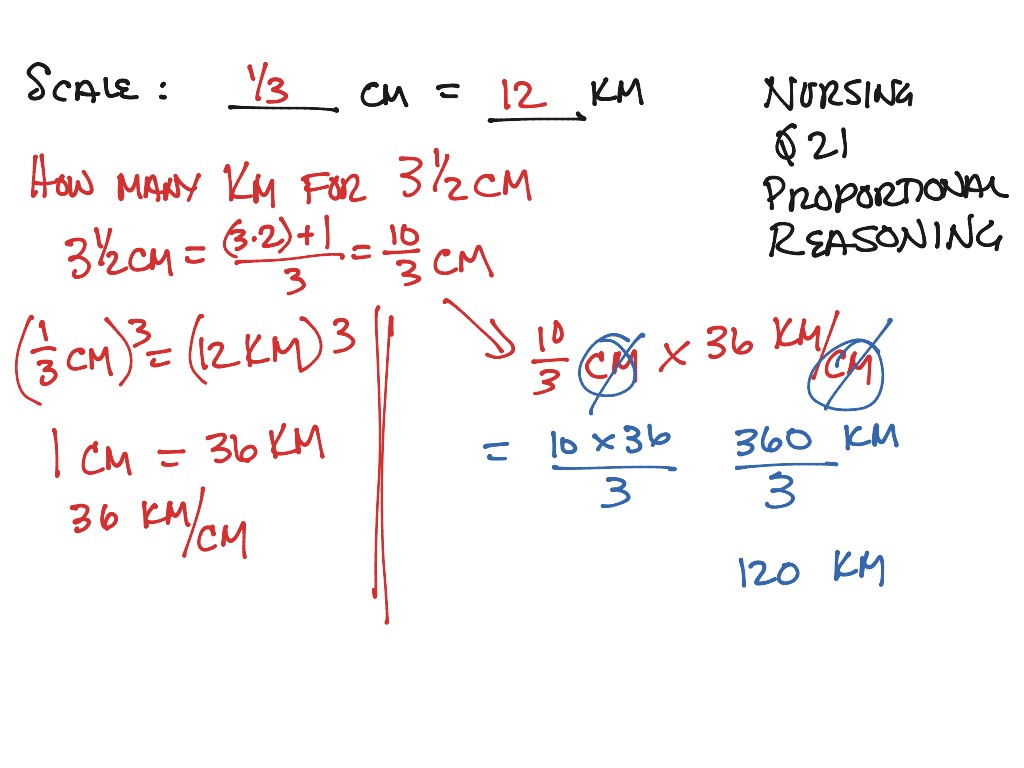 SCALE: 1/3 CM = 12 KM
NURSING
Q21
PROPORTIONAL
REASONING
HOW MANY KM FOR 3 1/2 CM
3 1/2 CM = (3·2)+1/3 = 10/3 CM
(1/3 CM)3 = (12 KM)3
1 CM = 36 KM
36 KM/CM
10/3 CM × 36 KM/CM
= 10 × 36/3 360/3 KM
120 KM